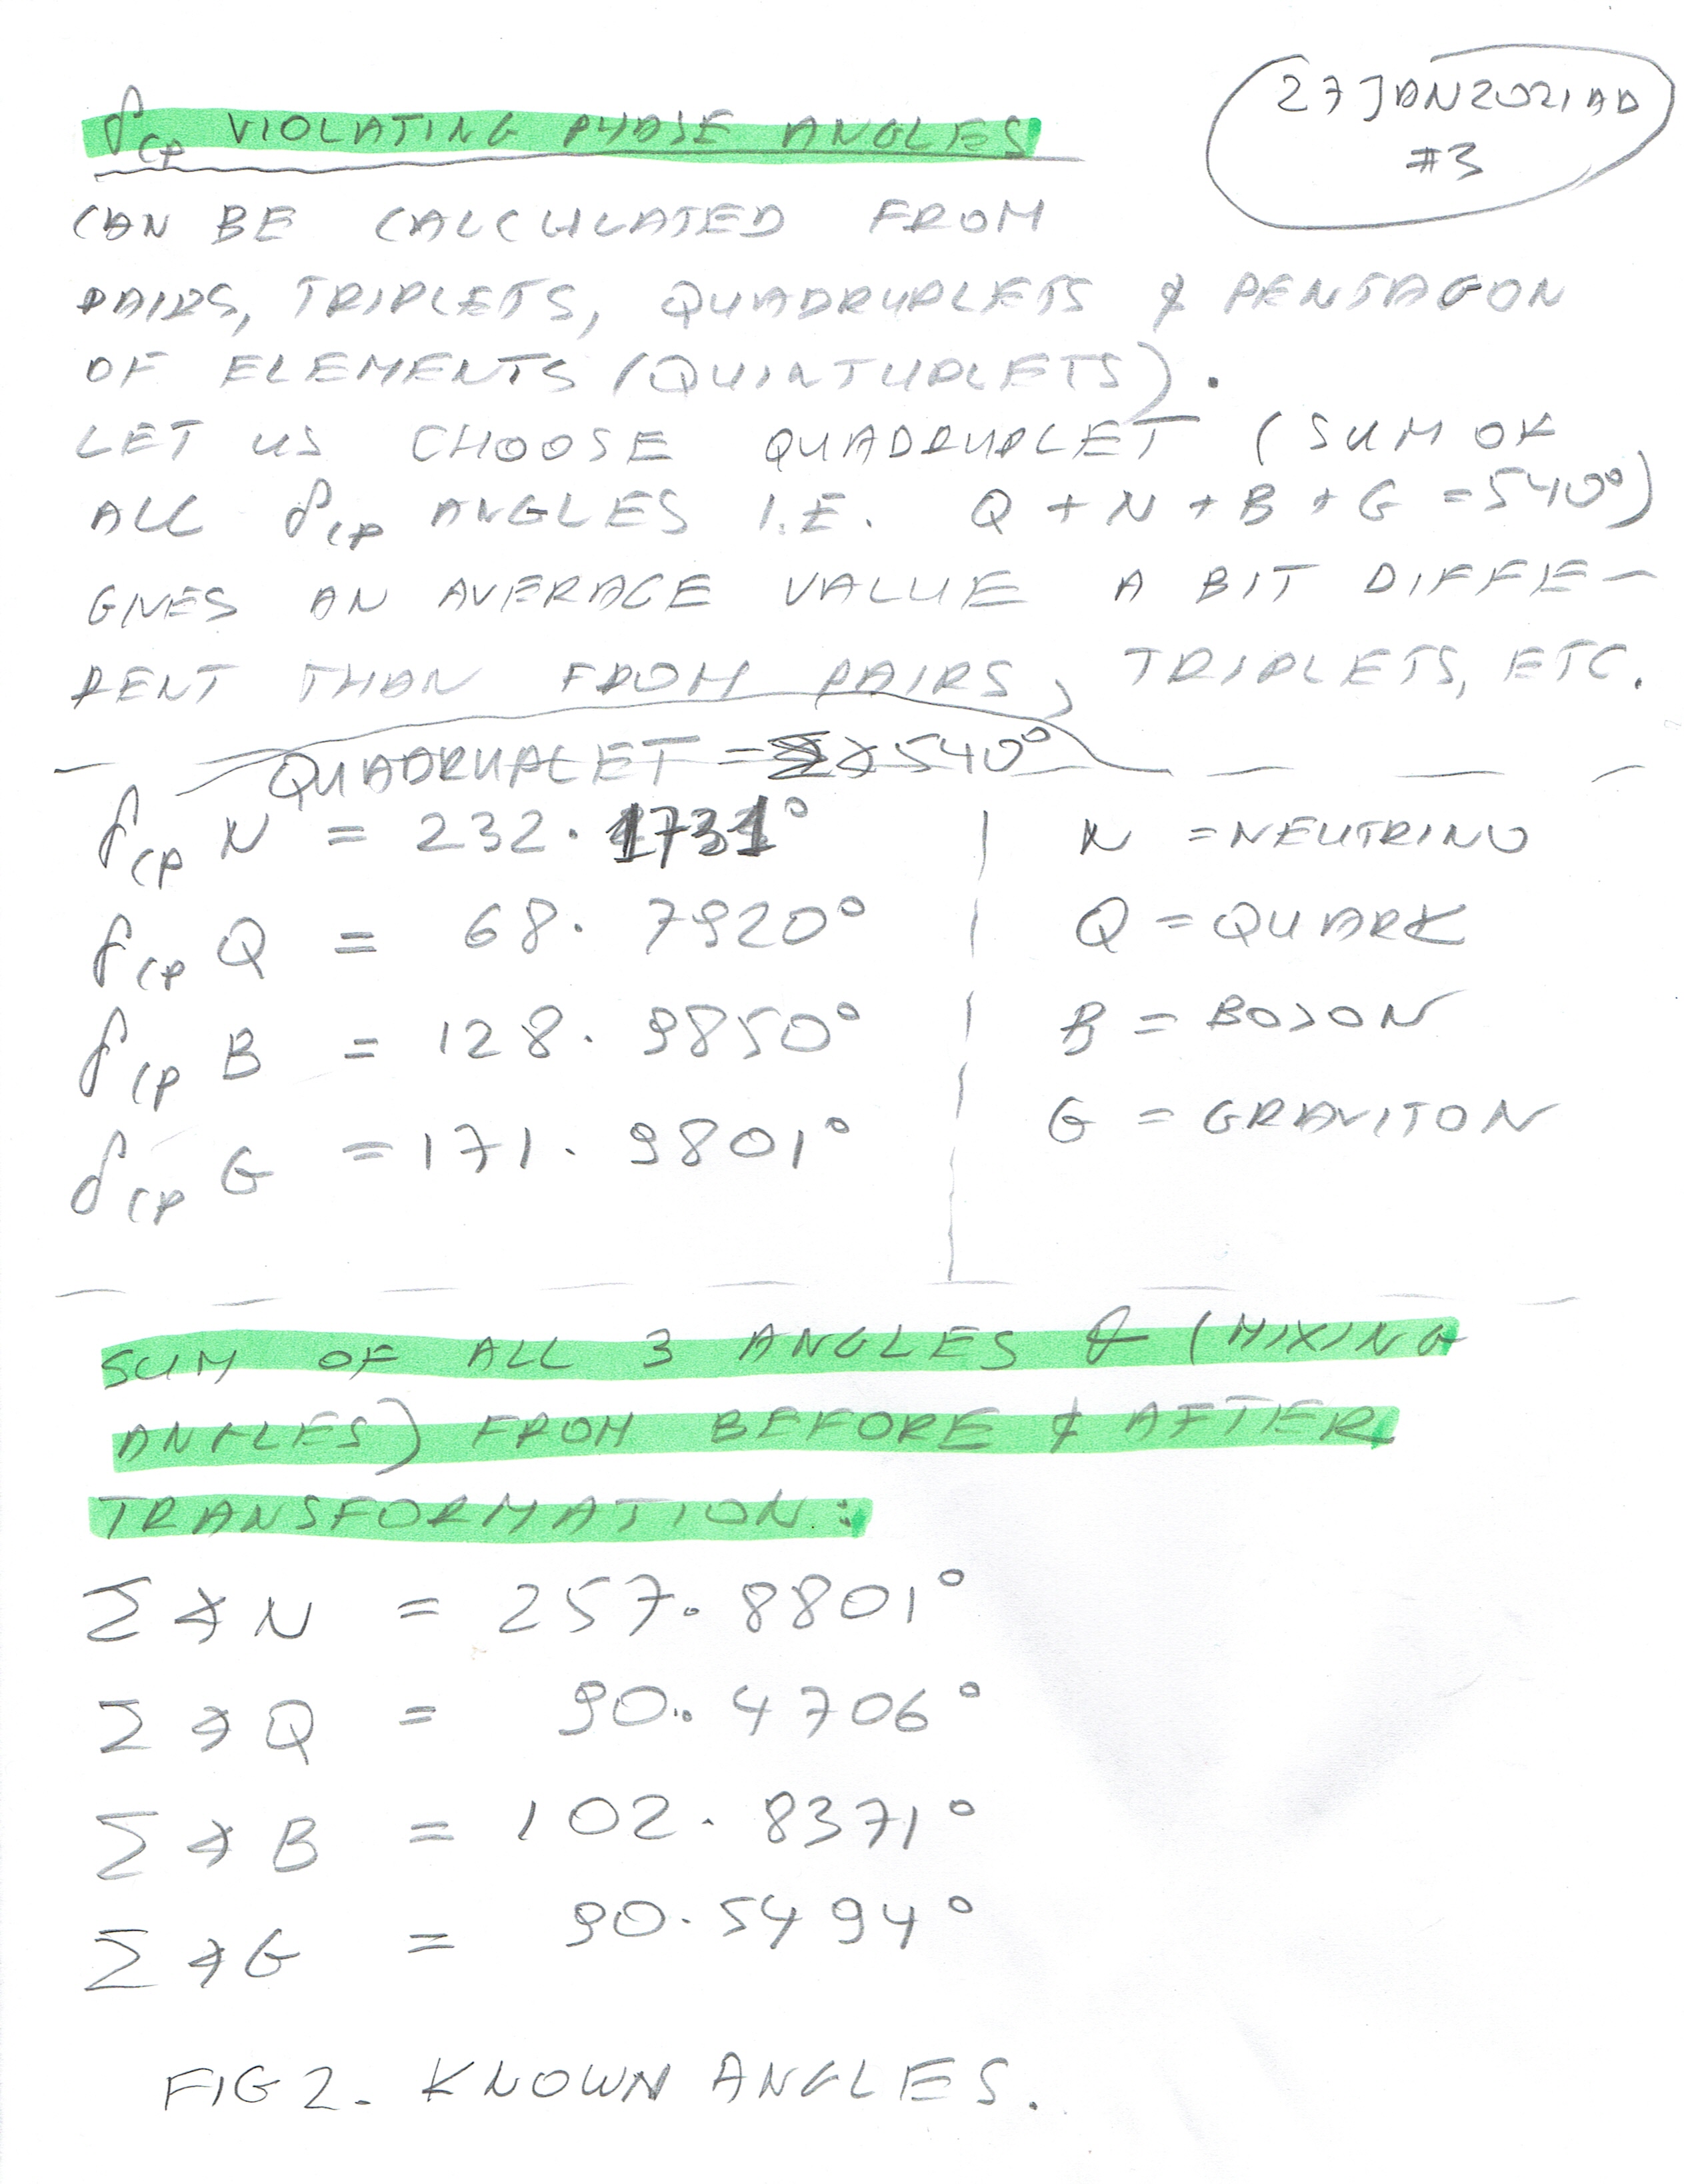 δCP VIOLATING PHASE ANGLES
27 JAN 2021 AD
#3
CAN BE CALCULATED FROM
PAIRS, TRIPLETS, QUADRUPLETS & PENTAGON
OF ELEMENTS (QUINTUPLETS).
LET US CHOOSE QUADRUPLET (SUM OF
ALL δCP ANGLES I.E. Q + N + B + G = 540°)
GIVES AN AVERAGE VALUE A BIT DIFFE-
RENT THAN FROM PAIRS, TRIPLETS, ETC.
QUADRUPLET = ∑∢ 540°
δCP N = 232.1731°
N = NEUTRINO
δCP Q = 68.7920°
Q = QUARK
δCP B = 128.9850°
B = BOSON
δCP G = 171.9801°
G = GRAVITON
SUM OF ALL 3 ANGLES & (MIXING
ANGLES) FROM BEFORE & AFTER
TRANSFORMATION:
∑∢N = 257.8801°
∑∢Q = 90.4706°
∑∢B = 102.8371°
∑∢G = 90.5494°
FIG 2. KNOWN ANGLES.